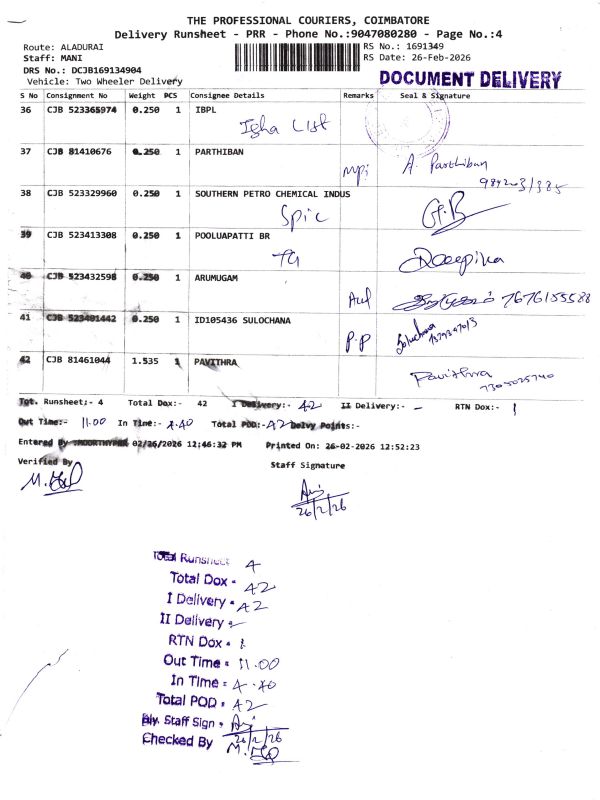 THE PROFESSIONAL COURIERS, COIMBATORE
Delivery Runsheet - PRR - Phone No.:9047080280 - Page No.:4
Route: ALADURAI
RS No.: 1691349
Staff: MANI
RS Date: 26-Feb-2026
DRS No.: DCJB169134904
Vehicle: Two Wheeler Delivery
DOCUMENT DELIVERY
S No Consignment No Weight PCS Consignee Details Remarks Seal & Signature
36 CJB 523365974 0.250 1 IBPL
List
37 CJB 81410676 0.250 1 PARTHIBAN
A. Parthiban
38 CJB 523329960 0.250 1 SOUTHERN PETRO CHEMICAL INDUS
Spic
G.B
39 CJB 523413308 0.250 1 POOLUAPATTI BR
Deepika
40 CJB 523432598 0.250 1 ARUMUGAM
7676155588
41 CJB 523401442 0.250 1 ID105436 SULOCHANA
P.P Sulochana
42 CJB 81461044 1.535 1 PAVITHRA
Pavithra
7305025740
Tot. Runsheet:- 4 Total Dox:- 42 I Delivery:- 42 II Delivery:- - RTN Dox:- 1
Out Time:- 11.00 In Time:- 4.40 Total POD:- 42 Delvy Points:-
Entered By 02/26/2026 12:46:32 PM Printed On: 26-02-2026 12:52:23
Verified By
Staff Signature
26/2/26
Total Runsheet 4
Total Dox - 42
I Delivery - 42
II Delivery -
RTN Dox - 1
Out Time - 11.00
In Time - 4.40
Total POD - 42
Dlv. Staff Sign -
26/2/26
Checked By